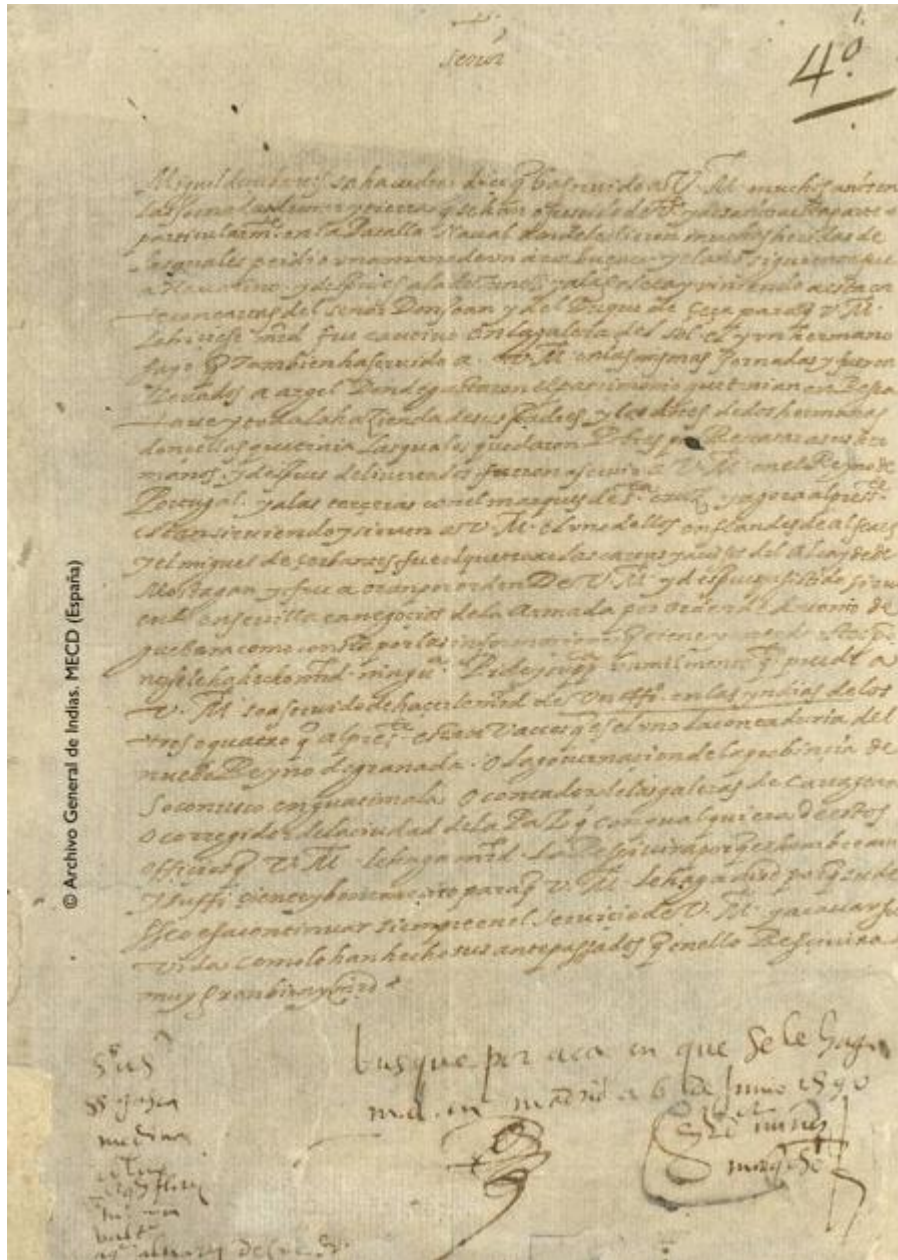 +
Señor
4º
Miguel de cerbantes sahauedra dice q ha seruido a V. M. muchos años en
las jornadas de mar y tierra q se han ofrescido de V. y dos años a esta parte
particularmte en la Batalla Naual donde le dieron muchas heridas de
las quales perdio vna mano de vn arcabuçaço y el año siguiente fue
a Nauarino y despues a la de Tunez y a la goleta y viniendo a esta corte
con cartas del señor Don Joan y del Duque de Çeça para q V. M.
le hiciese md fue cautiuo en la galera del sol el y vn hermano
suyo q Tambien ha seruido a V. M. en las mismas jornadas y fueron
lleuados a argel Donde gastaron el patrimonio que tenian en Resca
tarse y toda la hazienda de sus Padres y las dotes de dos hermanas
donzellas que tenia Las quales quedaron Pobres por Rescatar a sus her
manos y despues de liuertados fueron a seruir a V. M. en el Reyno de
Portugal y a las terceras con el marques de sta cruz y agora al preste
estan siruiendo y siruen a V. M. el vno dellos en flandes de alferez
y el miguel de cerbantes fue el que traxo las cartas y auisos del Alcayde de
Mostagan y fue a oran por orden De V. M. y despues asistido siru
endo en seuilla en negocios de la Armada por orden de Antonio de
gueuara como consta por las informaciones q tiene y en todo este tpo
no se le ha hecho md ninguna Pide y supca umilmente q puede a
V. M. sea seruido de hacerle md de Un offi en las yndias de los
tres o quatro q al preste estan Vacos q es el vno la contaduria del
nueuo Reyno de granada O la gouernacion de la probincia de
Soconusco en guatimala O contador de las galeras de Cartagena
O corregidor de la ciudad de la Paz q con qualquiera de estos
officios q V. M. le haga md La Resciuira porq es hombre auil
y suffi ciente y benemerito para q V. M. le haga md porq su de
sseo es a continuar siempre en el seruicio de V. M. y acauar su
vida como lo han hecho sus antepassados q en ello Resciuira
muy gran bien y md
busque por aca en que se le haga
md en madrid a 6 de Junio 1590
© Archivo General de Indias. MECD (España)